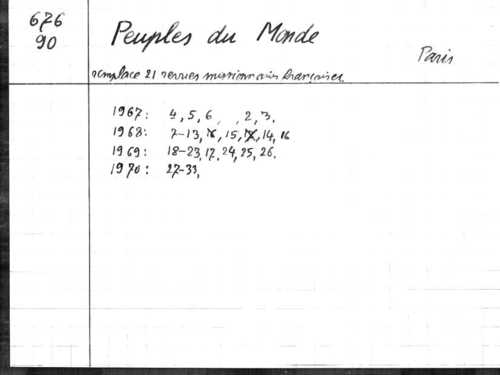 626
90
Peuples du Monde
Paris
remplace 21 revues missionnaires françaises
1967: 4, 5, 6, , 2, 3.
1968: 7-13, 15, 14, 16
1969: 18-23, 17, 24, 25, 26.
1970: 27-33,